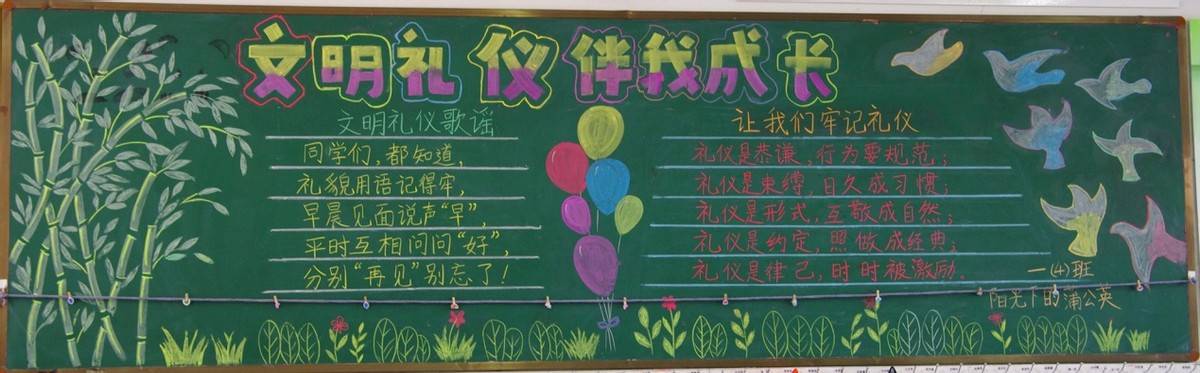 文明礼仪伴我成长
文明礼仪歌谣
同学们，都知道，
礼貌用语记得牢，
早晨见面说声“早”，
平时互相问问“好”，
分别“再见”别忘了！
让我们牢记礼仪
礼仪是恭谦，行为要规范；
礼仪是束缚，日久成习惯；
礼仪是形式，互敬成自然；
礼仪是约定，照做成经典；
礼仪是律己，时时被激励。
一（4）班
阳光下的蒲公英